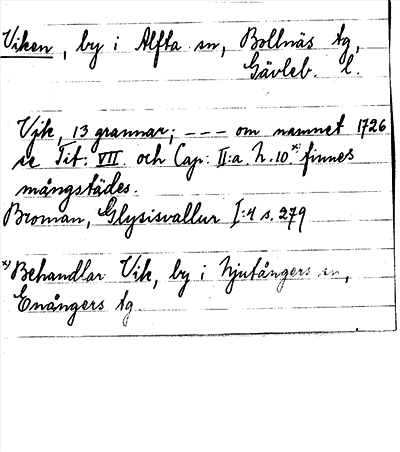 Viken, by i Alfta sn, Bollnäs tg,
Gävleb. l.
Vjk, 13 grannar; --- om namnet 1726
se Tit: VII. och Cap: II:a. N. 10*) finnes
mångstädes.
Broman, Glysisvallur I:4 s. 279
*) Behandlar Vik, by i Njutångers sn,
Enångers tg.